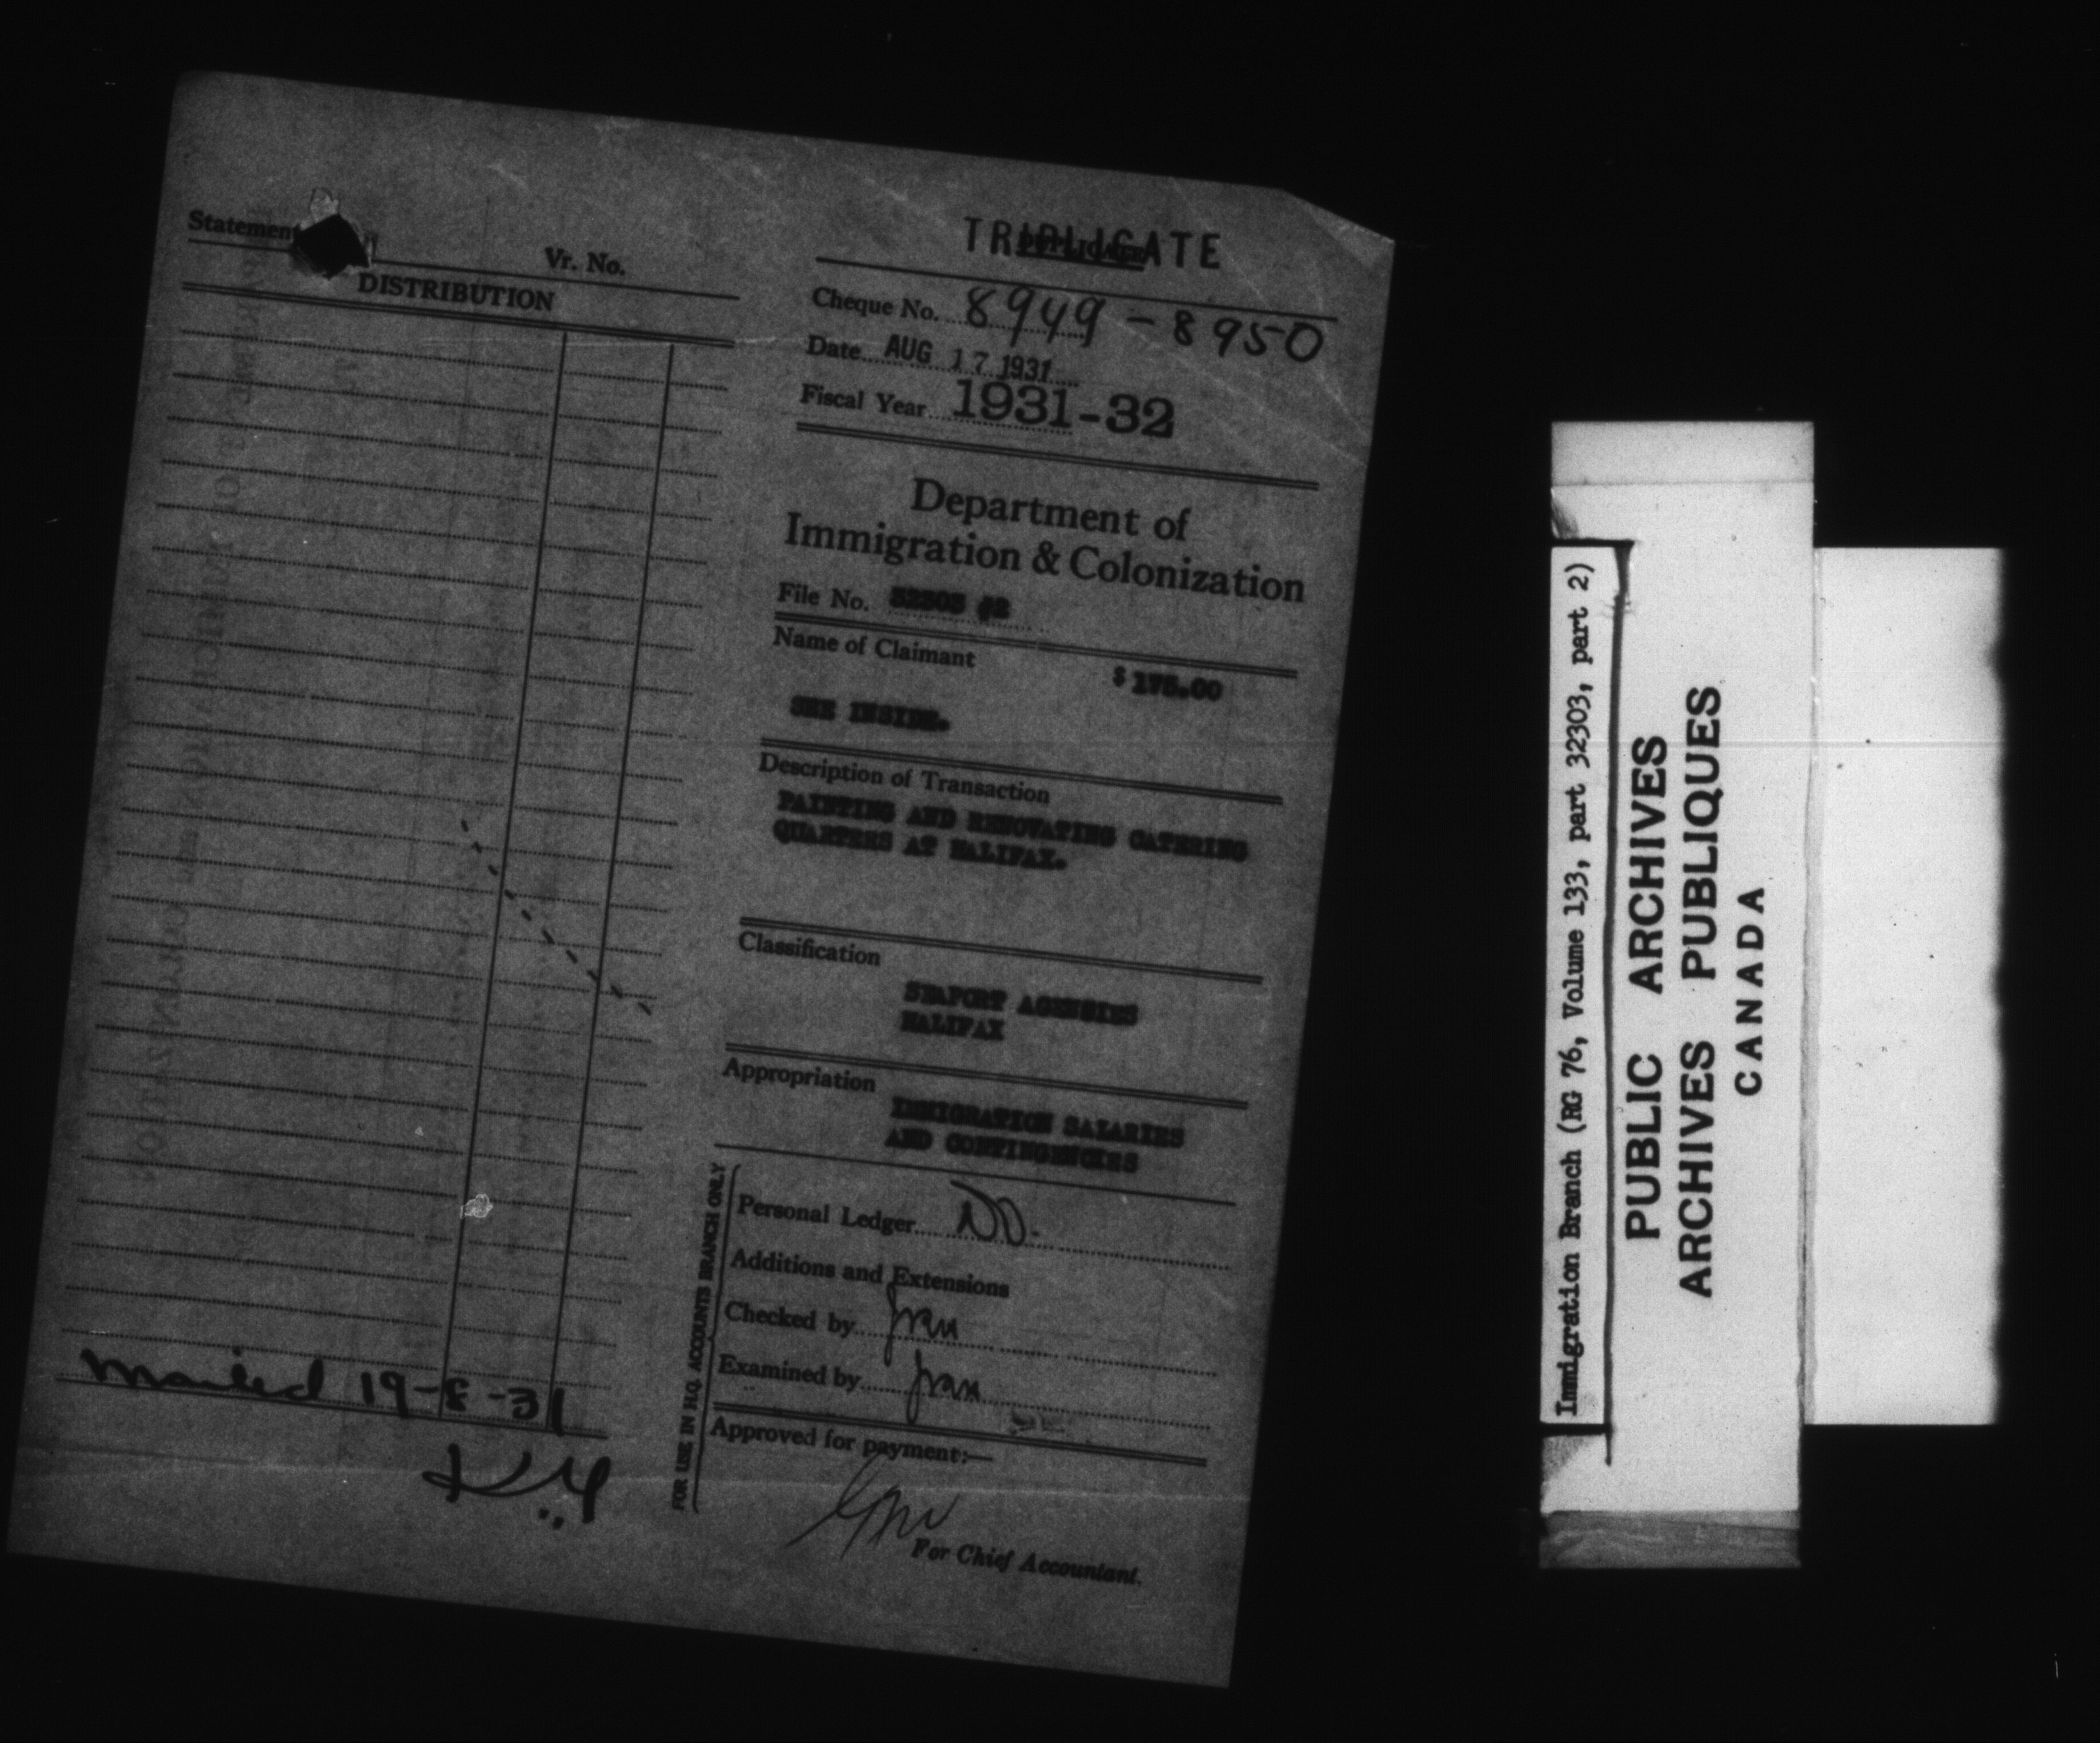 Statement
Vr. No.
DISTRIBUTION
Mailed 19-8-31
TRIPLICATE
Cheque No. 8949-8950
Date AUG 17 1931
Fiscal Year 1931-32
Department of
Immigration & Colonization
File No. 32303 #2
Name of Claimant
$ 175.00
SEE INSIDE.
Description of Transaction
PAINTING AND RENOVATING CATERING
QUARTERS AT HALIFAX.
Classification
SEAPORT AGENCIES
HALIFAX
Appropriation
IMMIGRATION SALARIES
AND CONTINGENCIES
FOR USE IN H.Q. ACCOUNTS BRANCH ONLY
Personal Ledger
Additions and Extensions
Checked by
Examined by
Approved for payment:—
For Chief Accountant.
Immigration Branch (RG 76, Volume 133, part 32303, part 2)
PUBLIC ARCHIVES
ARCHIVES PUBLIQUES
CANADA